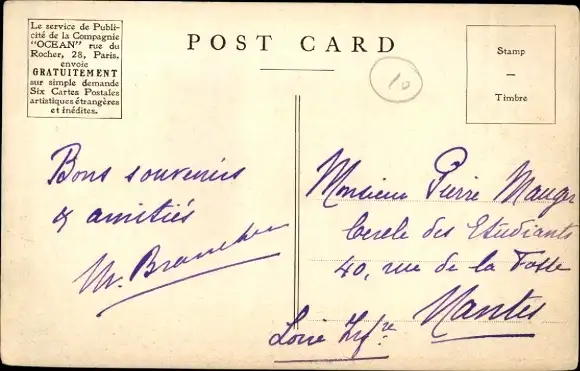 Le service de Publi-
cité de la Compagnie
"OCEAN" rue du
Rocher, 28, Paris.
envoie
GRATUITEMENT
sur simple demande
Six Cartes Postales
artistiques étrangères
et inédites.
POST CARD
10
Stamp
—
Timbre
Bons souvenirs
& amitiés
M.
Monsieur Pierre Mauger
Cercle des Etudiants
40, rue de la Fosse
Nantes
Loire Infre